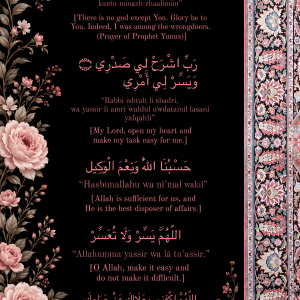 kuntu minazh-zhaalimiin"
[There is no god except You. Glory be to
You. Indeed, I was among the wrongdoers.
(Prayer of Prophet Yunus)]
رَبِّ اشْرَحْ لِي صَدْرِي
وَيَسِّرْ لِي أَمْرِي
"Rabbi ishrah li shadri,
wa yassir li amri wahlul uwdatamil lasani
yafqahli"
[My Lord, open my heart and
make my task easy for me.]
حَسْبُنَا اللهُ وَنِعْمَ الْوَكِيل
"Hasbunallahu wa ni'mal wakil"
[Allah is sufficient for us, and
He is the best disposer of affairs.]
اللَّهُمَّ يَسِّرْ وَلَا تُعَسِّرْ
"Allahumma yassir wa lā tu'assir."
[O Allah, make it easy and
do not make it difficult.]